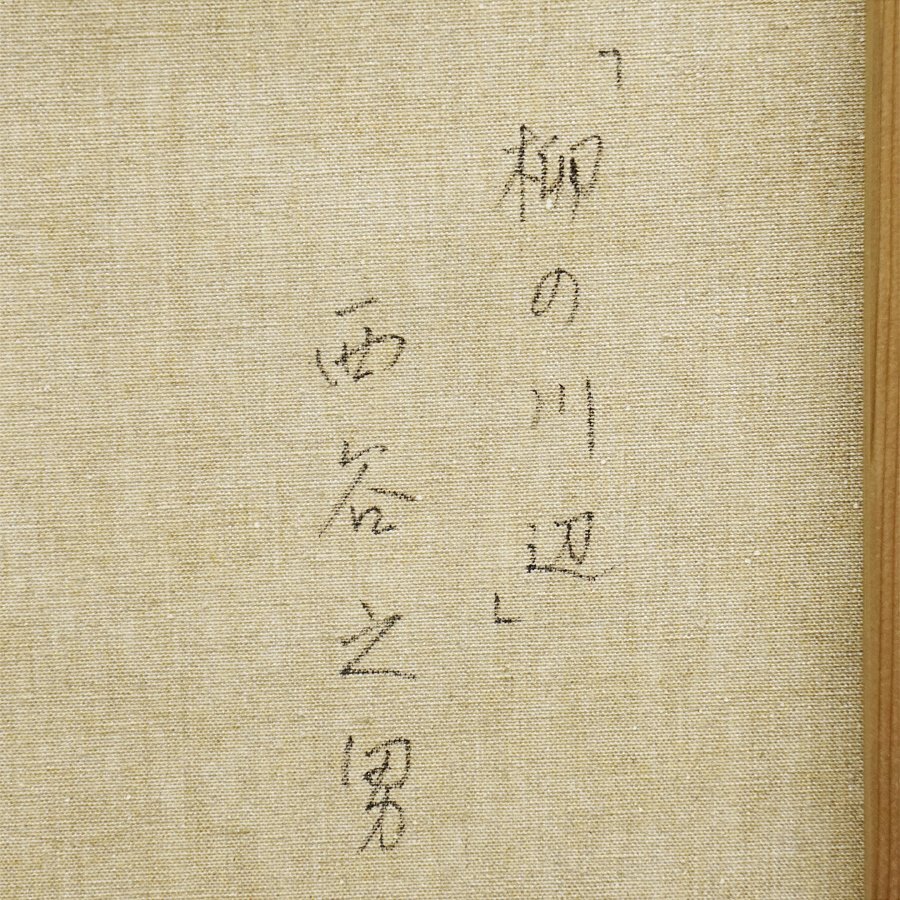 「柳の川辺」
西谷之男